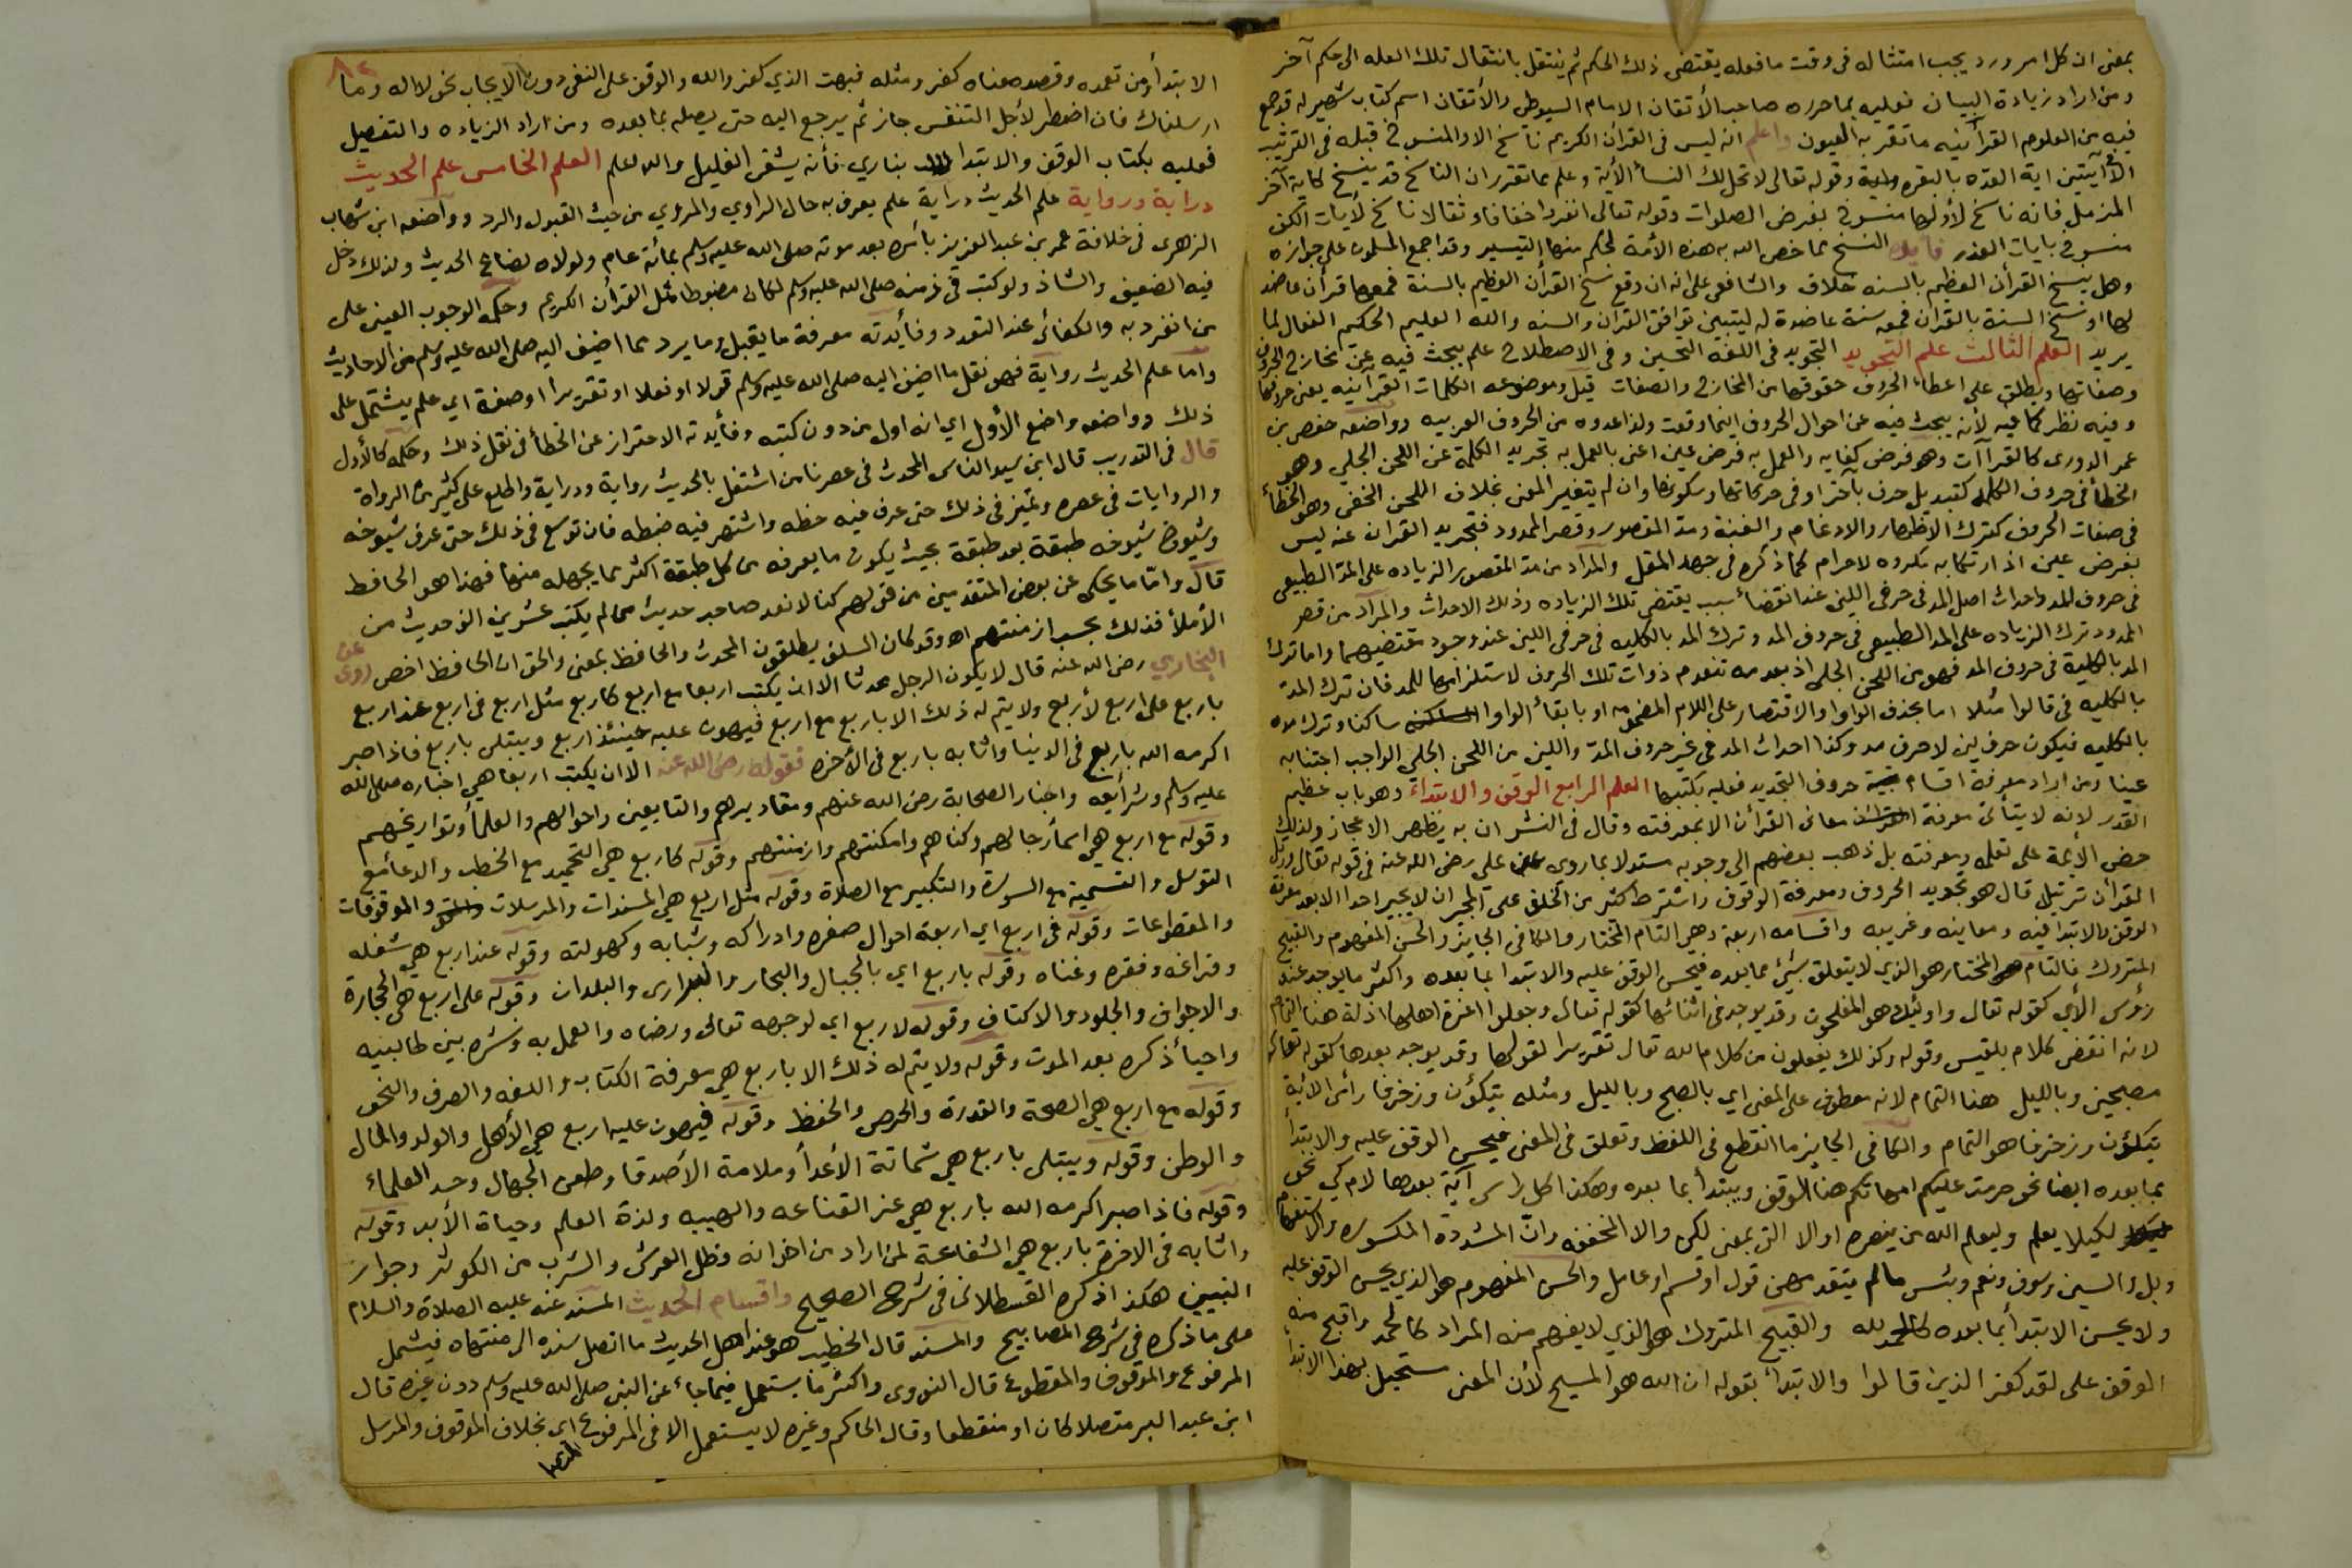 بمعنى ان كل امر ورد يجب امتثاله فى وقت ما فعله يقتضى ذلك الحكم ثم ينتقل بانتقال تلك العله الى حكم آخر
ومن اراد زيادة البيان فعليه بما حرره صاحب الأتقان الامام السيوطى والأتقان اسم كتاب شهير له قد جمع
فيه من العلوم القرآنيه ما تقر به العيون واعلم انه ليس فى القرآن الكريم ناسخ الا والمنسوخ قبله فى الترتيب
الا آيتين اية العدّه بالبقره وقوله تعالى لا تحل لك النسأ الأية وعلم مما تقرر ان الناسخ قد ينسخ كاية آخر
المزمل فانه ناسخ لأولها منسوخ بفرض الصلوات وقوله تعالى انفروا خفافا وثقالا ناسخ لأيات الكف
منسوخ بايات العذر فايده النسخ مما خص الله به هذه الأمة لحكم منها التيسير وقد اجمع المسلمون على جوازه
وهل ينسخ القرأن العظيم بالسنه خلاف والشافعى على انه ان وقع نسخ القرأن العظيم بالسنة فمعها قرأن عاضد
لها او نسخ السنة بالقرأن فمعه سنة عاضدة له ليتبين توافق القرآن والسنه والله العليم الحكيم الفعال لما
يريد العلم الثالث علم التجويد التجويد فى اللغة التحسين وفى الاصطلاح علم يبحث فيه عن مخارج الحروف
وصفاتها ويطلق على اعطاء الحروف حقوقها من المخارج والصفات قيل وموضوعه الكلمات القرآنيه يعنى حروفها
وفيه نظر كما فيه لأنه يبحث فيه عن احوال الحروف اينما وقعت ولذا عدوه من الحروف العربيه وواضعه حفص بن
عمر الدورى كالقراآت وهو فرض كفايه والعمل به فرض عين اعنى بالعمل به تجريد الكلمة عن اللحن الجلي وهو
الخطأ فى حروف الكلمه كتبديل حرف بآخر او فى حركاتها وسكونها وان لم يتغير المعنى بخلاف اللحن الخفى وهو الخطأ
فى صفات الحروف كترك الاظهار والادغام والغنة ومد المقصور وقصر الممدود فتجريد القران عنه ليس
بفرض عين اذ ارتكابه مكروه لا حرام كما ذكره فى جهد المقل والمراد من مد المقصور الزياده على المد الطبيعى
فى حروف المد واحداث اصل المد فى حرفى اللين عند انقضأ سبب يقتضى تلك الزياده وذلك الاحداث والمراد من قصر
الممدود ترك الزياده على المد الطبيعى فى حروف المد وترك المد بالكليه فى حرفى اللين عند وجود مقتضيهما واما ترك
المد بالكلية فى حروف المد فهو من اللحن الجلى اذ بعدمه تنعدم ذوات تلك الحروف لاستلزامها للمد فان ترك المد
بالكليه فى قالوا مثلا اما بحذف الواو والاقتصار على اللام المضمومه او بابقأ الواو ساكنا وترك مده
بالكليه فيكون حرف لين لا حرف مد وكذا احداث المد فى غير حروف المدّ واللين من اللحن الجلى الواجب اجتنابه
عينا ومن اراد معرفة اقسام بقية حروف التجويد فعليه بكتبها العلم الرابع الوقف والابتداء وهو باب عظيم
القدر لانه لا يتأتى معرفة معانى القرأن الا بمعرفته وقال فى النشر ان به يظهر الاعجاز ولذلك
حض الأئمة على تعلمه ومعرفته بل ذهب بعضهم الى وجوبه مستدلا بما روى عن على رضى الله عنه فى قوله تعالى ورتل
القرأن ترتيلا قال هو تجويد الحروف ومعرفة الوقوف واشترط كثير من الخلف على المجيز ان لا يجيز احدا الا بعد معرفة
الوقف والابتدا فيه ومعاينه وغريبه واقسامه اربعة وهي التام المختار والكافى الجايز والحسن المفهوم والقبيح
المتروك فالتام المختار هو الذي لا يتعلق بشئ مما بعده فيحسن الوقف عليه والابتدا بما بعده واكثر ما يوجد عند
رؤس الأي كقوله تعالى واولئك هم المفلحون وقد يوجد فى اثنائها كقوله تعالى وجعلوا اعزة اهلها اذلة هنا التمام
لانه انقضى كلام بلقيس وقوله وكذلك يفعلون من كلام الله تعالى تقريرا لقولها وقد يوجد بعدها كقوله تعالى
مصبحين وبالليل هنا التمام لانه معطوف على المعنى اي بالصبح وبالليل ومثله يتكؤن وزخرفا رأس الاية
يتكؤن وزخرفا هو التمام والكافى الجايز ما انقطع فى اللفظ وتعلق فى المعنى فيحسن الوقف عليه والابتدأ
بما بعده ايضا نحو حرمت عليكم امهاتكم هنا الوقف ويبتدأ بما بعده وهكذا كل راس آية بعدها لام كي نحو
لكيلا يعلم وليعلم الله من ينصره او الا التى بمعنى لكن والا المخففه وانّ المشددة المكسوره والاستفهام
وبل والسين وسوف ونعم وبئس ما لم يتقدمهن قول او قسم او عامل والحسن المفهوم هو الذي يحسن الوقف عليه
ولا يحسن الابتدأ بما بعده كالحمد لله والقبيح المتروك هو الذي لا يفهم منه المراد كالحمد واقبح منه
الوقف على لقد كفر الذين قالوا والابتدأ بقوله ان الله هو المسيح لأن المعنى مستحيل بهذا الابتدا
الابتدأ ومن تعمده وقصد معناه كفر ومثله فبهت الذي كفر والله والوقف على النفى دون الايجاب نحو لا اله وما
ارسلناك فان اضطر لأجل التنفس جاز ثم يرجع اليه حتى يصله بما بعده ومن اراد الزياده والتفصيل
فعليه بكتاب الوقف والابتدا بناري فأنه يشفى الغليل والله اعلم العلم الخامس علم الحديث
دراية ورواية علم الحديث دراية علم يعرف به حال الراوي والمروي من حيث القبول والرد وواضعه ابن شهاب
الزهرى فى خلافة عمر بن عبد العزيز بأمره بعد موته صلى الله عليه وسلم بمائة عام ولولاه لضاع الحديث ولذلك دخل
فيه الضعيف والشاذ ولو كتب فى زمنه صلى الله عليه وسلم لكان مضبوطا مثل القرأن الكريم وحكمه الوجوب العينى على
من انفرد به والكفائى عند التعدد وفأيدته معرفة ما يقبل وما يرد مما اضيف اليه صلى الله عليه وسلم من الاحاديث
واما علم الحديث رواية فهو نقل ما اضيف اليه صلى الله عليه وسلم قولا او فعلا او تقريرا او صفة اي علم يشتمل على
ذلك وواضعه واضع الأول اي انه اول من دون كتبه وفأيدته الاحتراز عن الخطأ فى نقل ذلك وحكمه كالأول
قال فى التدريب قال ابن سيد الناس المحدث فى عصرنا من اشتغل بالحديث رواية ودراية واطلع على كثير من الرواة
والروايات فى عصره وتميز فى ذلك حتى عرف فيه حظه واشتهر فيه ضبطه فان توسع فى ذلك حتى عرف شيوخه
وشيوخ شيوخه طبقة بعد طبقة بحيث يكون ما يعرفه من كل طبقة اكثر مما يجهله منها فهذا هو الحافظ
قال وامّا ما يحكى عن بعض المتقدمين من قولهم كنا لا نعد صاحب حديث من لم يكتب عشرين الف حديث من
الأملأ فذلك بحسب ازمنتهم اه وقد كان السلف يطلقون المحدث والحافظ بمعنى والحق ان الحافظ اخص روى عن
البخاري رضى الله عنه قال لا يكون الرجل محدثا الا ان يكتب اربعا مع اربع كاربع مثل اربع فى اربع عند اربع
باربع على اربع لأربع ولا يتم له ذلك الا باربع مع اربع فيهون عليه حينئذ اربع ويبتلى باربع فاذا صبر
اكرمه الله باربع فى الدنيا واثابه باربع فى الأخره فقوله رضى الله عنه الا ان يكتب اربعا هي اخباره صلى الله
عليه وسلم وشرأيعه واخبار الصحابة رضى الله عنهم ومقاديرهم والتابعين واحوالهم والعلمأ وتواريخهم
وقوله مع اربع هي اسمأ رجالهم وكناهم وامكنتهم وازمنتهم وقوله كاربع هي التحميد مع الخطب والدعا مع
التوسل والتسمية مع السورة والتكبير مع الصلاة وقوله مثل اربع هي المسندات والمرسلات والموقوفات
والمقطوعات وقوله فى اربع اي اربعة احوال صغره وادراكه وشبابه وكهولته وقوله عند اربع هي شغله
وفراغه وفقره وغناه وقوله باربع اي بالجبال والبحار والبرارى والبلدان وقوله على اربع هي الحجارة
والاجواف والجلود والاكتاف وقوله لاربع اي لوجهه تعالى ورضاه والعمل به ونشره بين طالبيه
واحيأ ذكره بعد الموت وقوله ولا يتم له ذلك الا باربع هي معرفة الكتاب واللغه والصرف والنحو
وقوله مع اربع هي الصحة والقدرة والحرص والحفظ وقوله فيهون عليه اربع هي الأهل والولد والمال
والوطن وقوله ويبتلى باربع هي شماتة الأعدأ وملامة الأصدقا وطعن الجهال وحسد العلماء
وقوله فاذا صبر اكرمه الله باربع هي عز القناعه والهيبه ولذة العلم وحياة الأبد وقوله
واثابه فى الاخرة باربع هي الشفاعة لمن اراد من اخوانه وظل العرش والشرب من الكوثر وجوار
النبيين هكذا ذكره القسطلانى فى شرح الصحيح واقسام الحديث المسند عنه عليه الصلاة والسلام
على ما ذكره فى شرح المصابيح والمسند قال الخطيب هو عند اهل الحديث ما اتصل سنده الى منتهاه فيشمل
المرفوع والموقوف والمقطوع قال النووى واكثر ما يستعمل فيما جاء عن النبى صلى الله عليه وسلم دون غيره قال
ابن عبد البر متصلا كان او منقطعا وقال الحاكم وغيره لا يستعمل الا فى المرفوع اي بخلاف الموقوف والمرسل